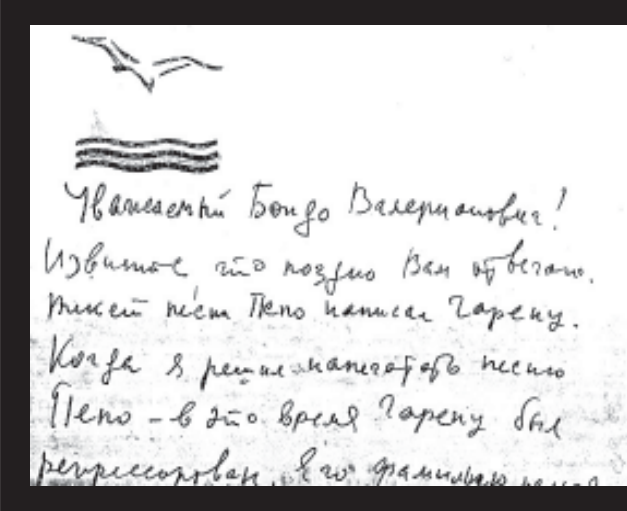 Уважаемый Бондо Валерианович!
Извините что поздно Вам отвечаю.
песни Пепо написал Чаренц.
Когда я решил напечатать песню
Пепо – в это время Чаренц был
репрессирован, его фамилию